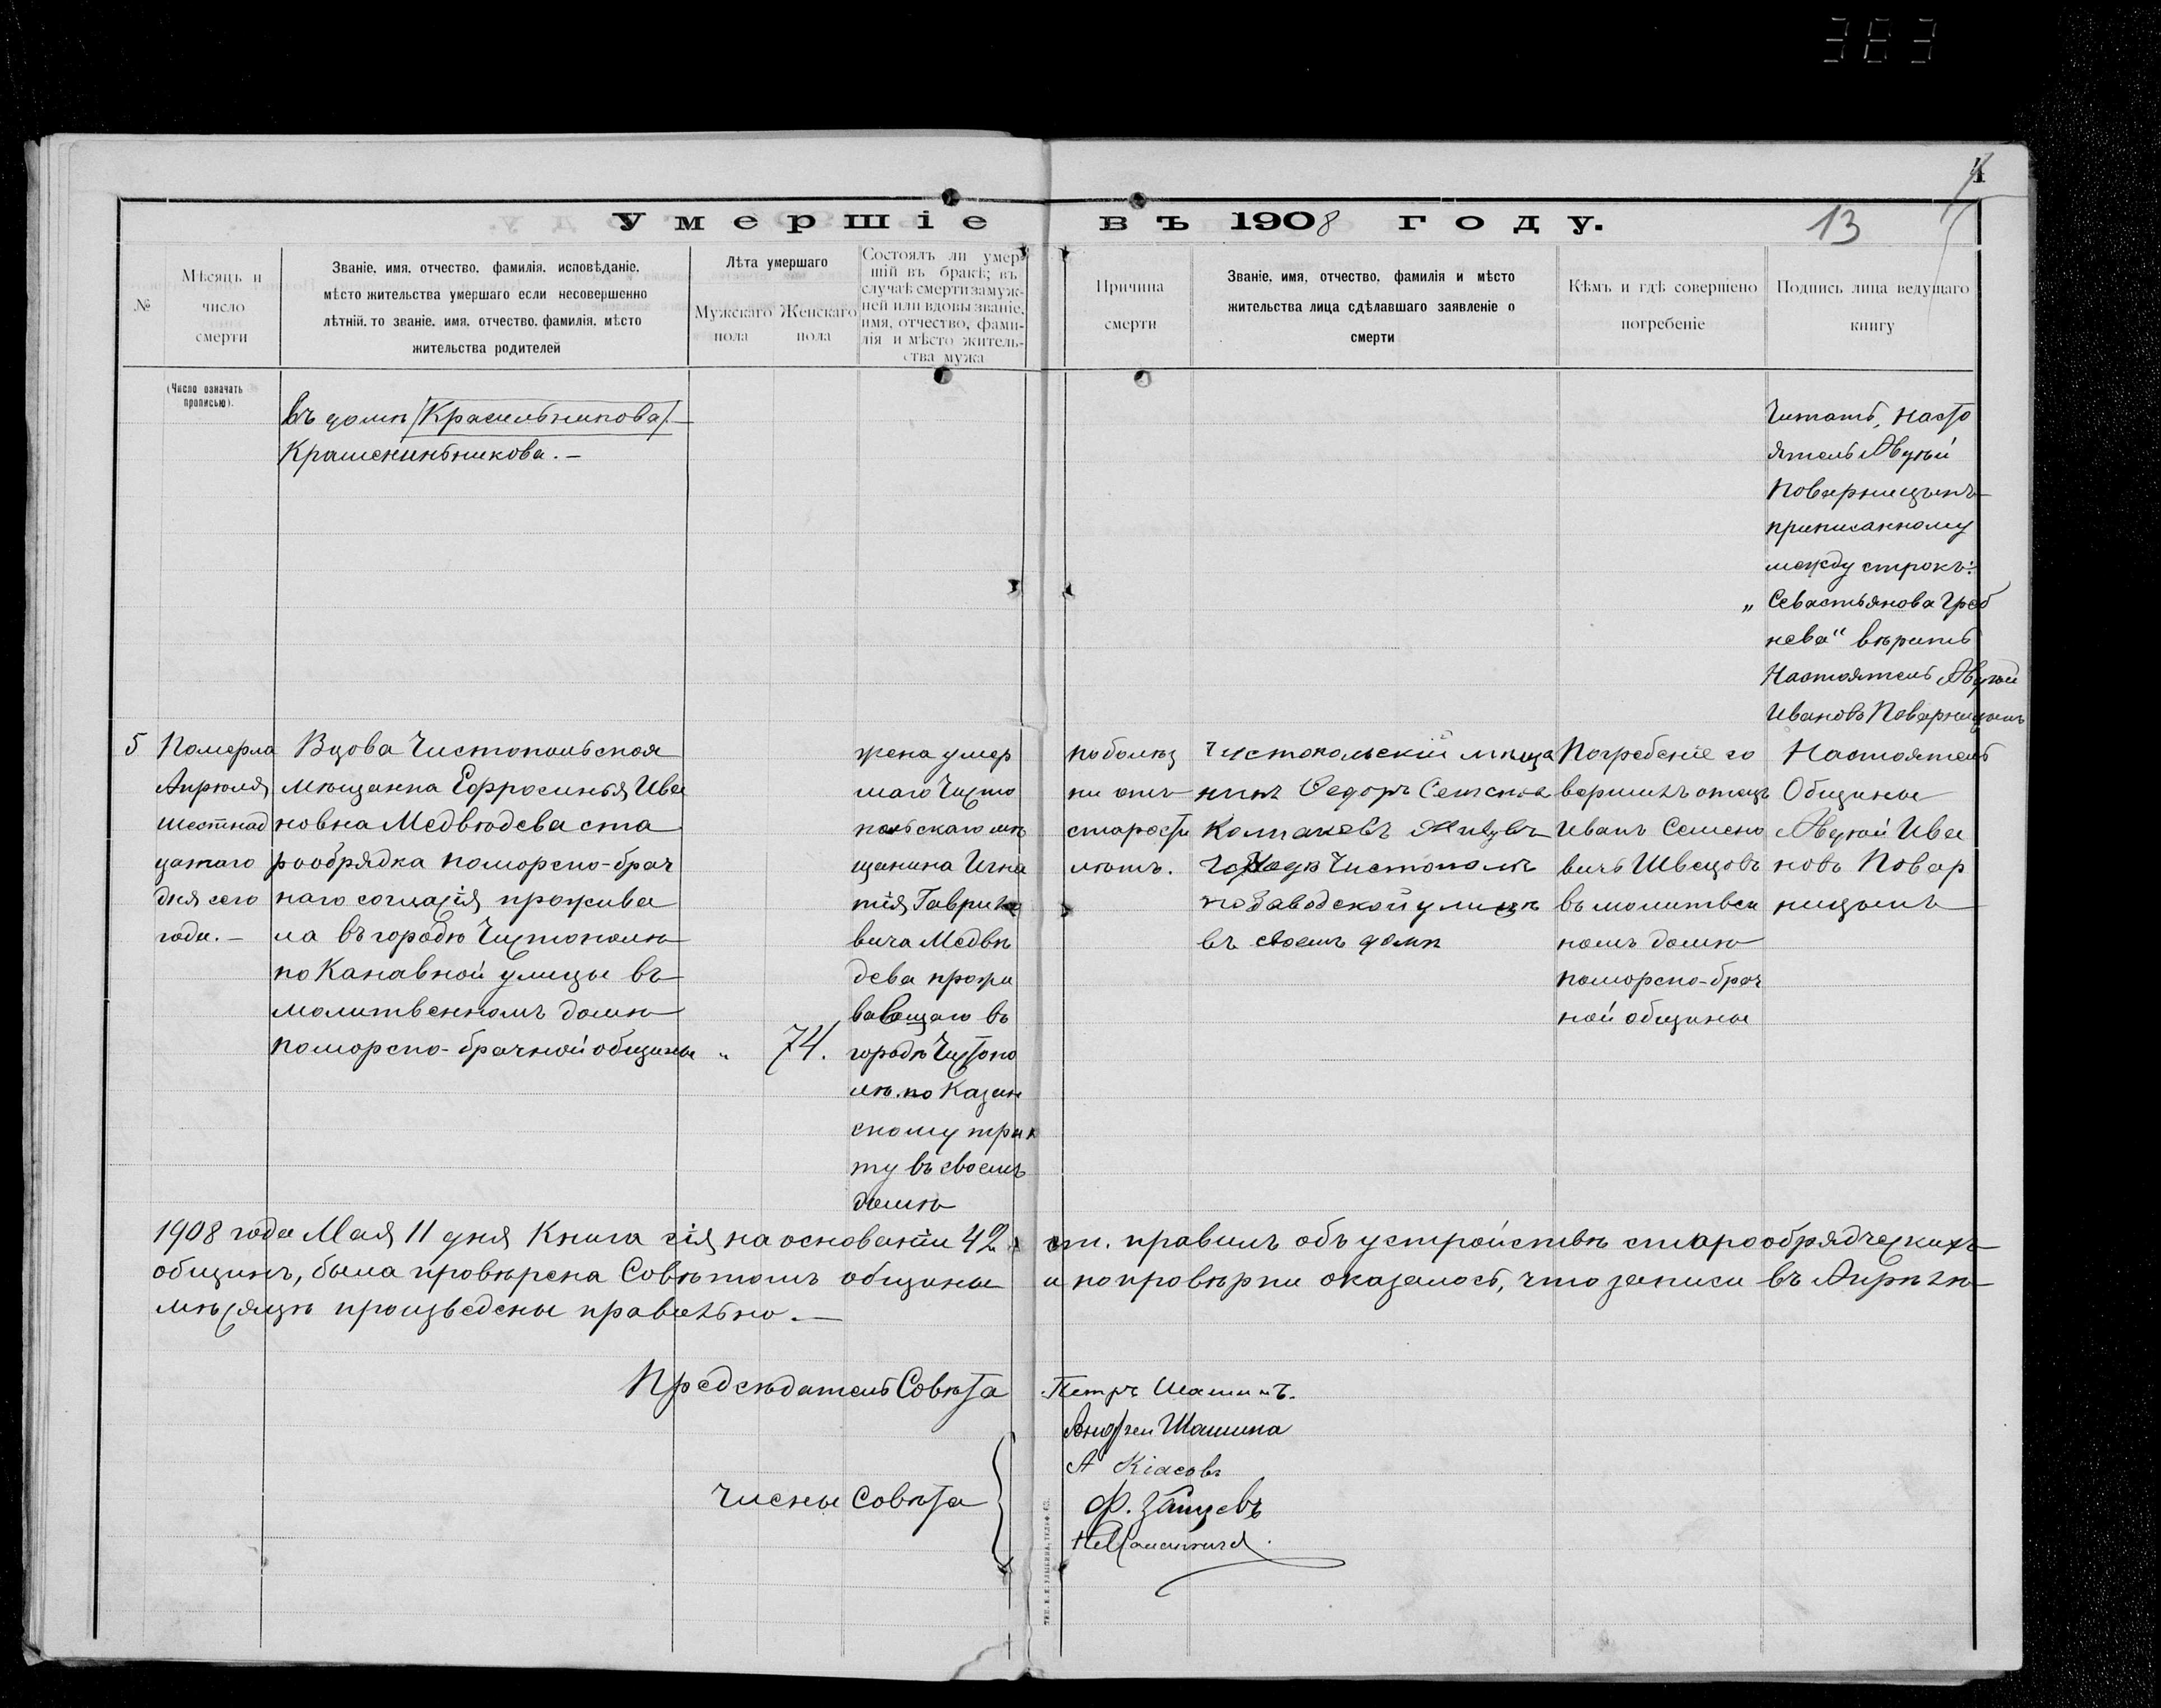 363
4
Умершіе въ 1908 году.
13
№
Мѣсяцъ и
число
смерти
Званіе, имя, отчество, фамилія, исповѣданіе,
мѣсто жительства умершаго если несовершенно
лѣтній, то званіе, имя, отчество, фамилія, мѣсто
жительства родителей
Лѣта умершаго
Мужскаго
пола
Женскаго
пола
Состоялъ ли умер-
шій въ бракѣ; въ
случаѣ смерти замуж-
ней или вдовы званіе,
имя, отчество, фами-
лія и мѣсто житель-
ства мужа
Причина
смерти
Званіе, имя, отчество, фамилія и мѣсто
жительства лица сдѣлавшаго заявленіе о
смерти
Кѣмъ и гдѣ совершено
погребеніе
Подпись лица ведущаго
книгу
(Число означать
прописью).
въ домѣ /Красильникова/.—
Крашенинникова.—
Читать, насто
ятель Авдѣй
Поварницынъ
приписанному
между строкъ:
„Севастьянова Греб
нева" вѣрить
Настоятель Авдѣй
Ивановъ Поварницынъ
5
Померла
Апрѣля
шестнад
цатаго
дня сего
года.—
Вдова Чистопольская
мѣщанка Ефросинья Ива
новна Медвѣдева ста
рообрядка поморско-брач
наго согласія прожива
ла въ городѣ Чистополѣ
по Канавной улицы въ
молитвенномъ домѣ
поморско-брачной общины
"
74.
жена умер
шаго Чисто
польскаго мѣ
щанина Игна
тія Гаврило
вича Медвѣ
дева прожи
вавшаго въ
городѣ Чистопо
лѣ по Казан
скому трак
ту въ своемъ
домѣ
по болѣз
ни отъ
старости
лѣтъ.
Чистопольскій мѣща
нинъ Ѳедоръ Семенов
Колпаковъ живущ
городѣ Чистополѣ
по Заводской улицѣ
въ своемъ домѣ
Погребеніе со
вершилъ отецъ
Иванъ Семено
вичъ Швецовъ
въ молитвен
номъ домѣ
поморско-брач
ной общины
Настоятель
Общины
Авдѣй Ива
новъ Повар
ницынъ
1908 года Мая 11 дня Книга сія на основаніи 42 ст. правилъ объ устройствѣ старообрядческихъ
общинъ, была провѣрена Совѣтомъ общины и по провѣрки оказалось, что записи въ Апрѣлѣ
мѣсяцѣ произведены правильно.—
Предсѣдатель Совѣта Петръ Шашинъ.
Андрей Шашина
А Кіасовъ
Члены Совѣта
Ф. Зайцевъ